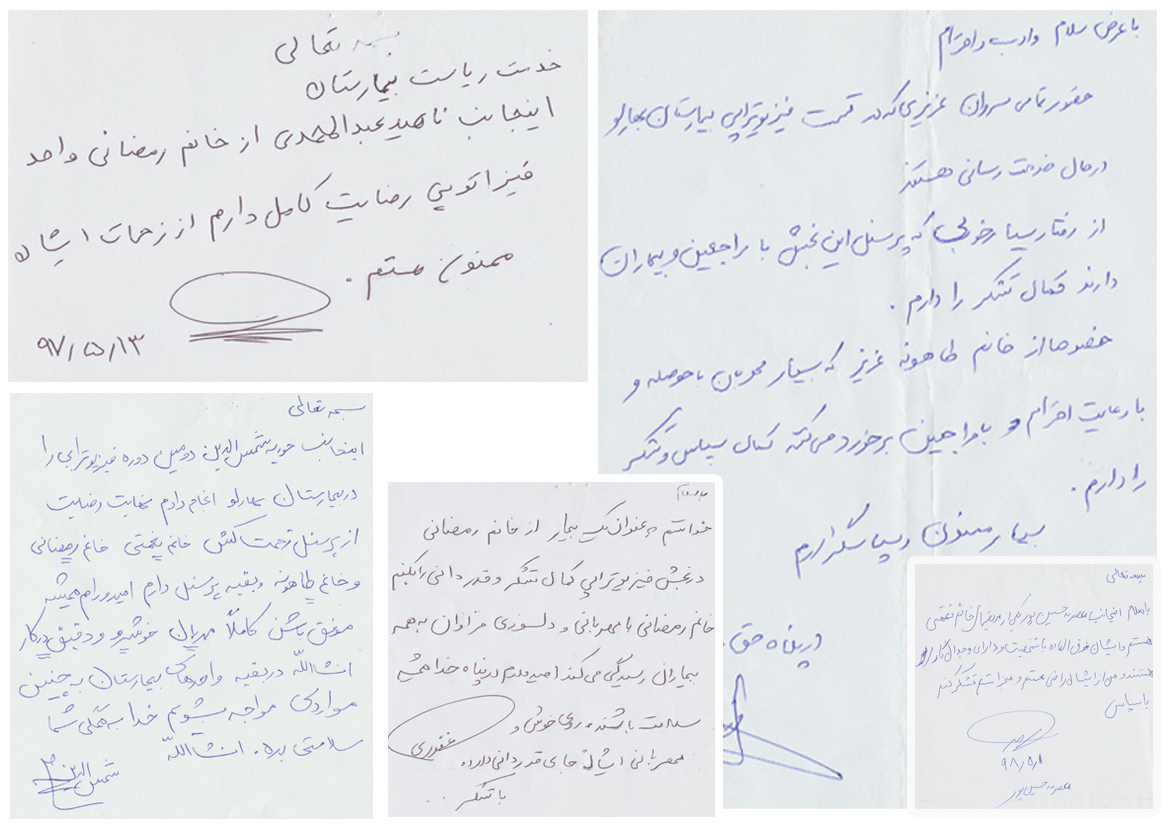 بسمه تعالی
خدمت ریاست بیمارستان
اینجانب ناهید عبدالمحمدی از خانم رمضانی واحد
فیزاتوپی رضایت کامل دارم از زحمات ایشان
ممنون هستم.
۹۷/۵/۱۳
با عرض سلام و ادب و احترام
حضور تمامی سروران عزیزی که در قسمت فیزیوتراپی بیمارستان بهارلو
در حال خدمت رسانی هستند
از رفتار بسیار خوبی که پرسنل این بخش با مراجعین و بیماران
دارند کمال تشکر را دارم.
خصوصا از خانم طاحونه عزیز که بسیار مهربان با حوصله و
با رعایت احترام و با مراجعین برخورد می‌کنند کمال سپاس و تشکر
را دارم.
بیمار ممنون و سپاسگزارم
در پناه حق.
بسمه تعالی
اینجانب حوریه شمس الدین دومین دوره فیزیوتراپی را
در بیمارستان بهارلو انجام دادم نهایت رضایت
از پرسنل زحمت کش خانم خانم رمضانی
و خانم طاحونه و بقیه پرسنل دارم امیدورام همیشه
موفق باشن کاملاً مهربان خوشرو و دقیق در کار
انشاالله در بقیه واحدهای بیمارستان به چنین
مواردی مواجه بشویم خدا به همگی شما
سلامتی بده. انشاالله
شمس الدین
با سلام
خواستم به عنوان یک بیمار از خانم رمضانی
در بخش فیزیوتراپی کمال تشکر و قدردانی را بکنم
خانم رمضانی با مهربانی و دلسوزی فراوان به همه
بیماران رسیدگی می‌کند امیدوارم در پناه خدا همیشه
سلامت باشند روی خوش و
مهربانی ایشان جای قدردانی دارد
با تشکر
غفوری
بسمه تعالی
با سلام اینجانب معصومه حسین پور یکی از مریضهای خانم
هستم و ایشان فوق العاده با شخصیت و دارای وجدان کاری
هستند و من از ایشان راضی هستم و میخواستم تشکر کنم
با سپاس
۹۸/۵/۱
معصومه حسین پور